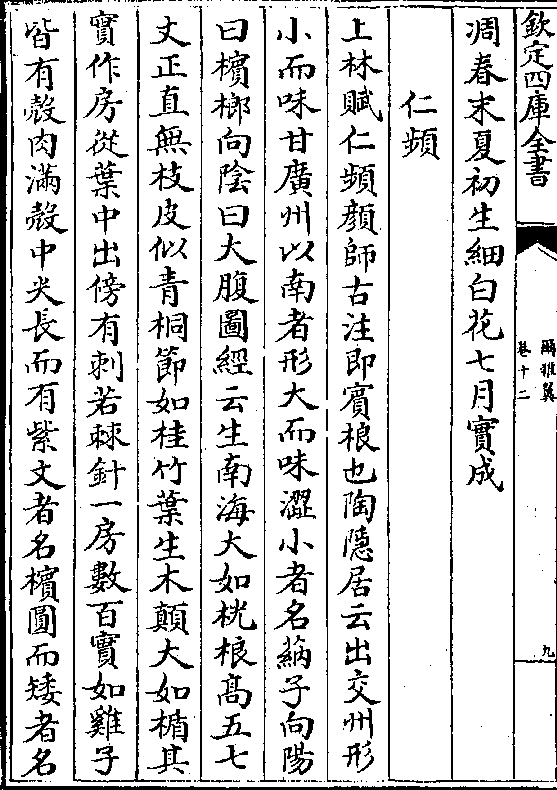 欽定四庫全書
爾雅翼
卷十二
九
凋春末夏初生細白花七月實成
仁頻
上林賦仁頻顔師古注即賓桹也陶隱居云出交州形
小而味甘廣州以南者形大而味澀小者名蒳子向陽
曰檳榔向陰曰大腹圖經云生南海大如桄桹髙五七
丈正直無枝皮似青桐節如桂竹葉生木顛大如楯其
實作房從葉中出傍有刺若棘針一房數百實如雞子
皆有殻肉滿殻中尖長而有紫文者名檳圓而矮者名